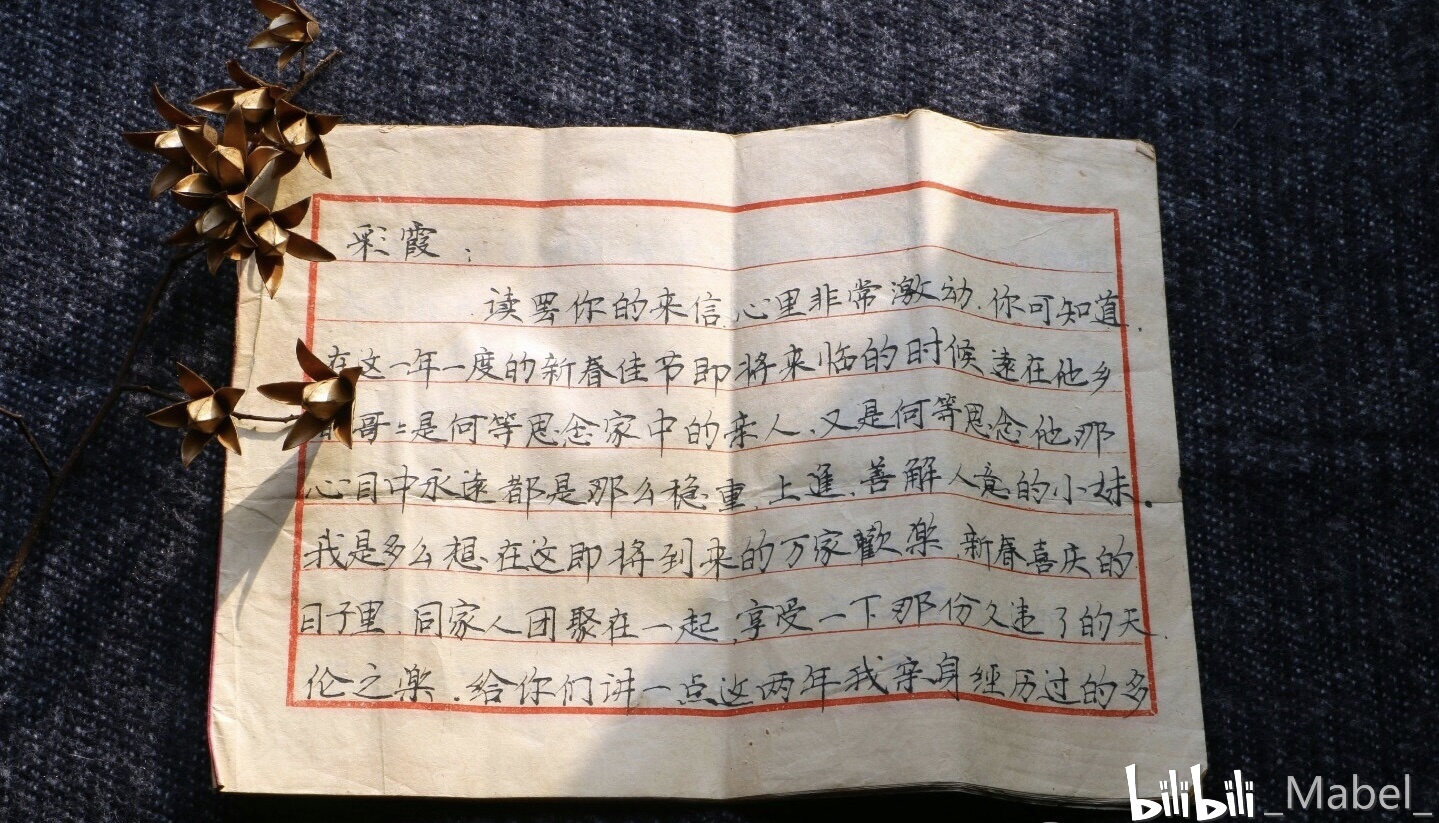 彩霞：
读罢你的来信心里非常激动.你可知道.
在这一年一度的新春佳节即将来临的时候远在他乡
哥〻是何等思念家中的亲人、又是何等思念他那
心目中永远都是那么稳重、上進、善解人意的小妹.
我是多么想在这即将到来的万家歡樂 新春喜庆的
日子里.同家人团聚在一起,享受一下那份久违了的天
伦之樂.给你们讲一点这两年我亲身经历过的多
bilibili _Mabel_